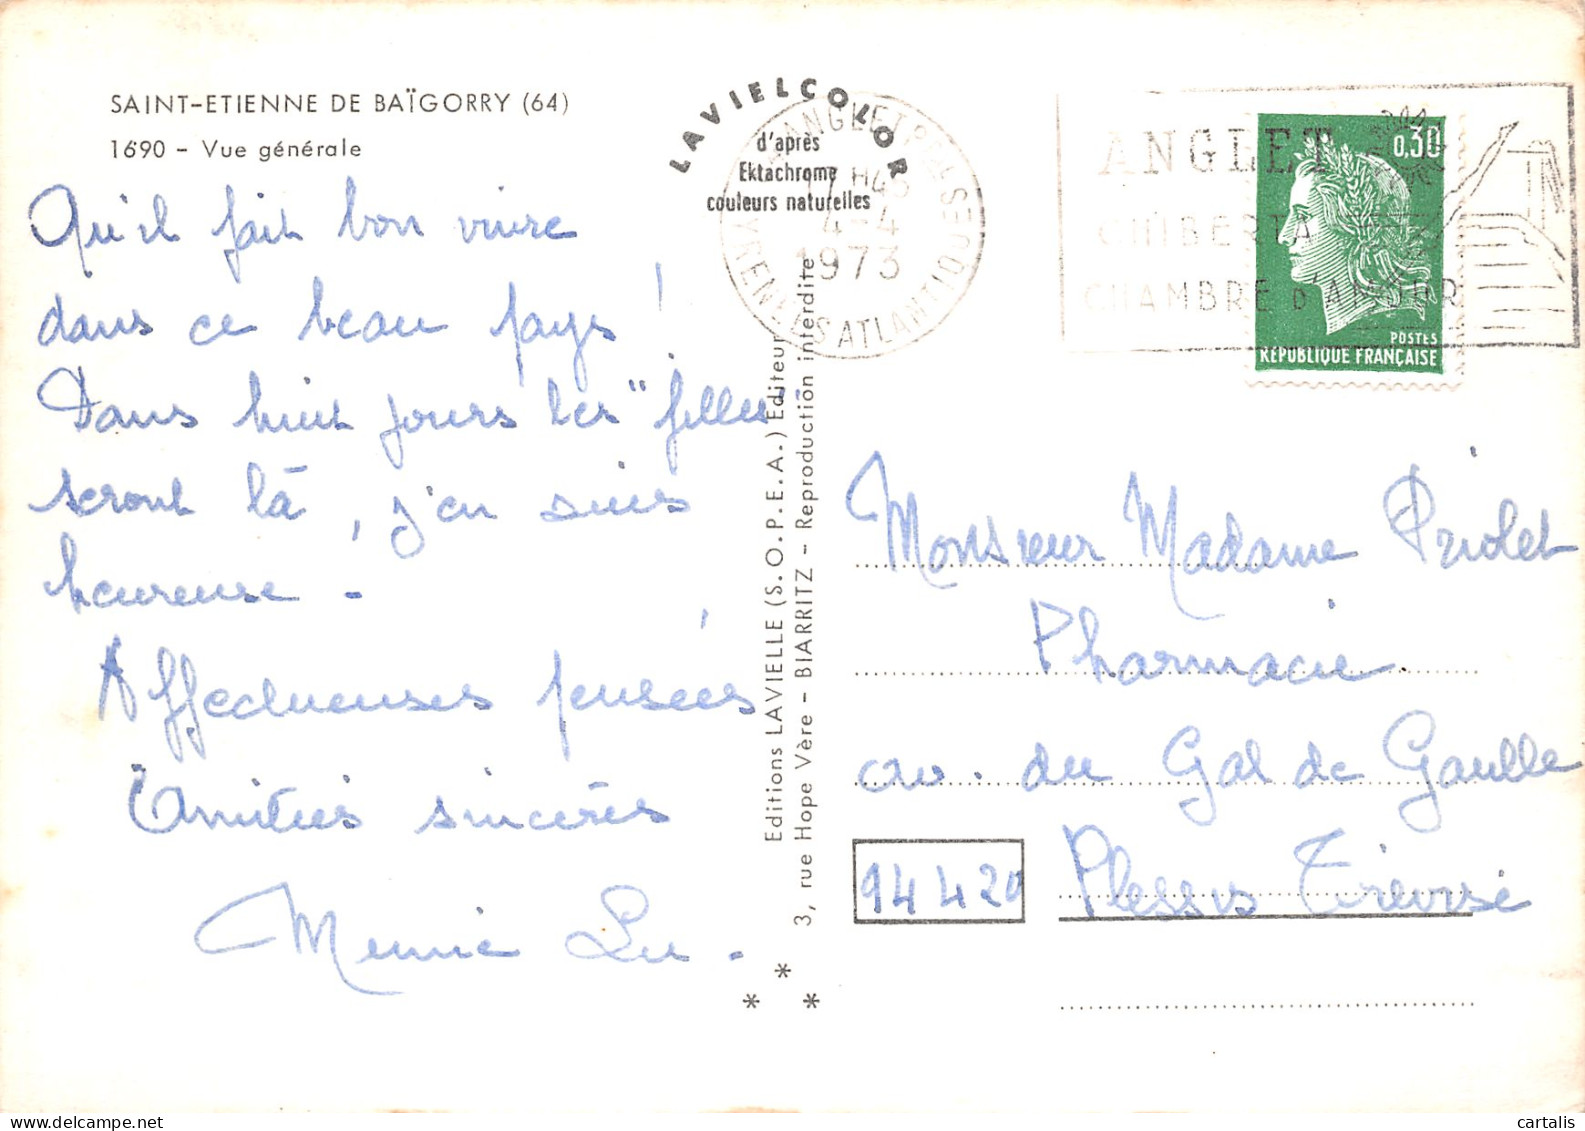 SAINT-ETIENNE DE BAÏGORRY (64)
1690 - Vue générale
Qu'il fait bon vivre
dans ce beau pays !
Dans huit jours les "filles"
seront là, j'en suis
heureuse -
Affectueuses pensées
Amitiés sincères
Mimie Lu -
LAVIELCOLOR
d'après
Ektachrome
couleurs naturelles
Editions LAVIELLE (S.O.P.E.A.) Editeur
3, rue Hope Vère - BIARRITZ - Reproduction interdite
* * *
ANGLET PPAL
17H45
4-4
1973
PYRENEES ATLANTIQUES
ANGLET
CHIBERTA
CHAMBRE D'AMOUR
0,30
POSTES
RÉPUBLIQUE FRANÇAISE
Monsieur Madame Priolet
Pharmacie
av. du Gal de Gaulle
94420 Plessis Trévise
cartalis